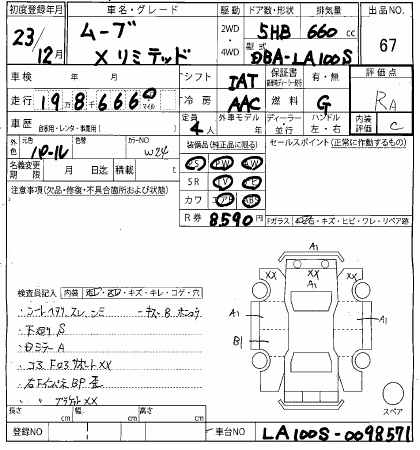 初度登録年月 車名・グレード 駆動 ドア数・形状 排気量 出品NO.
23/12月 ムーブ 2WD・4WD 5HB 660cc 67
Xリミテッド 型式 DBA-LA100S
車検 年 月 シフト IAT 保証書 有・無 評価点
走行 19万8千666 マイル 冷房 AAC 燃料 G RA
車歴 自家用・レンタ・事業用( ) 定員 4人 外車モデル 年 ディーラー・並行 ハンドル 左・右 内装評価 C
外色 元色 パール 色替 カラーNO W24 装備品(純正品に限る) セールスポイント(正常に作動するもの)
名義変更期限 月 日迄 積載 t PS PW AW
注意事項(欠品・修復・不具合箇所および状態) SR TV
カワ エアB ABS
R券 8590円 Fガラス キズ・ヒビ・ワレ・リペア跡
A1
XX XX XX
A1
検査員記入 内装 キズ・キレ・コゲ・穴
シートヘタリ スレ シミ
下廻り S
A1 A1
B1
コアサポートXX
右Fインパネ BP 歪
長さ cm 幅 cm 高さ cm スペア
登録NO 車台NO LA100S-0098571